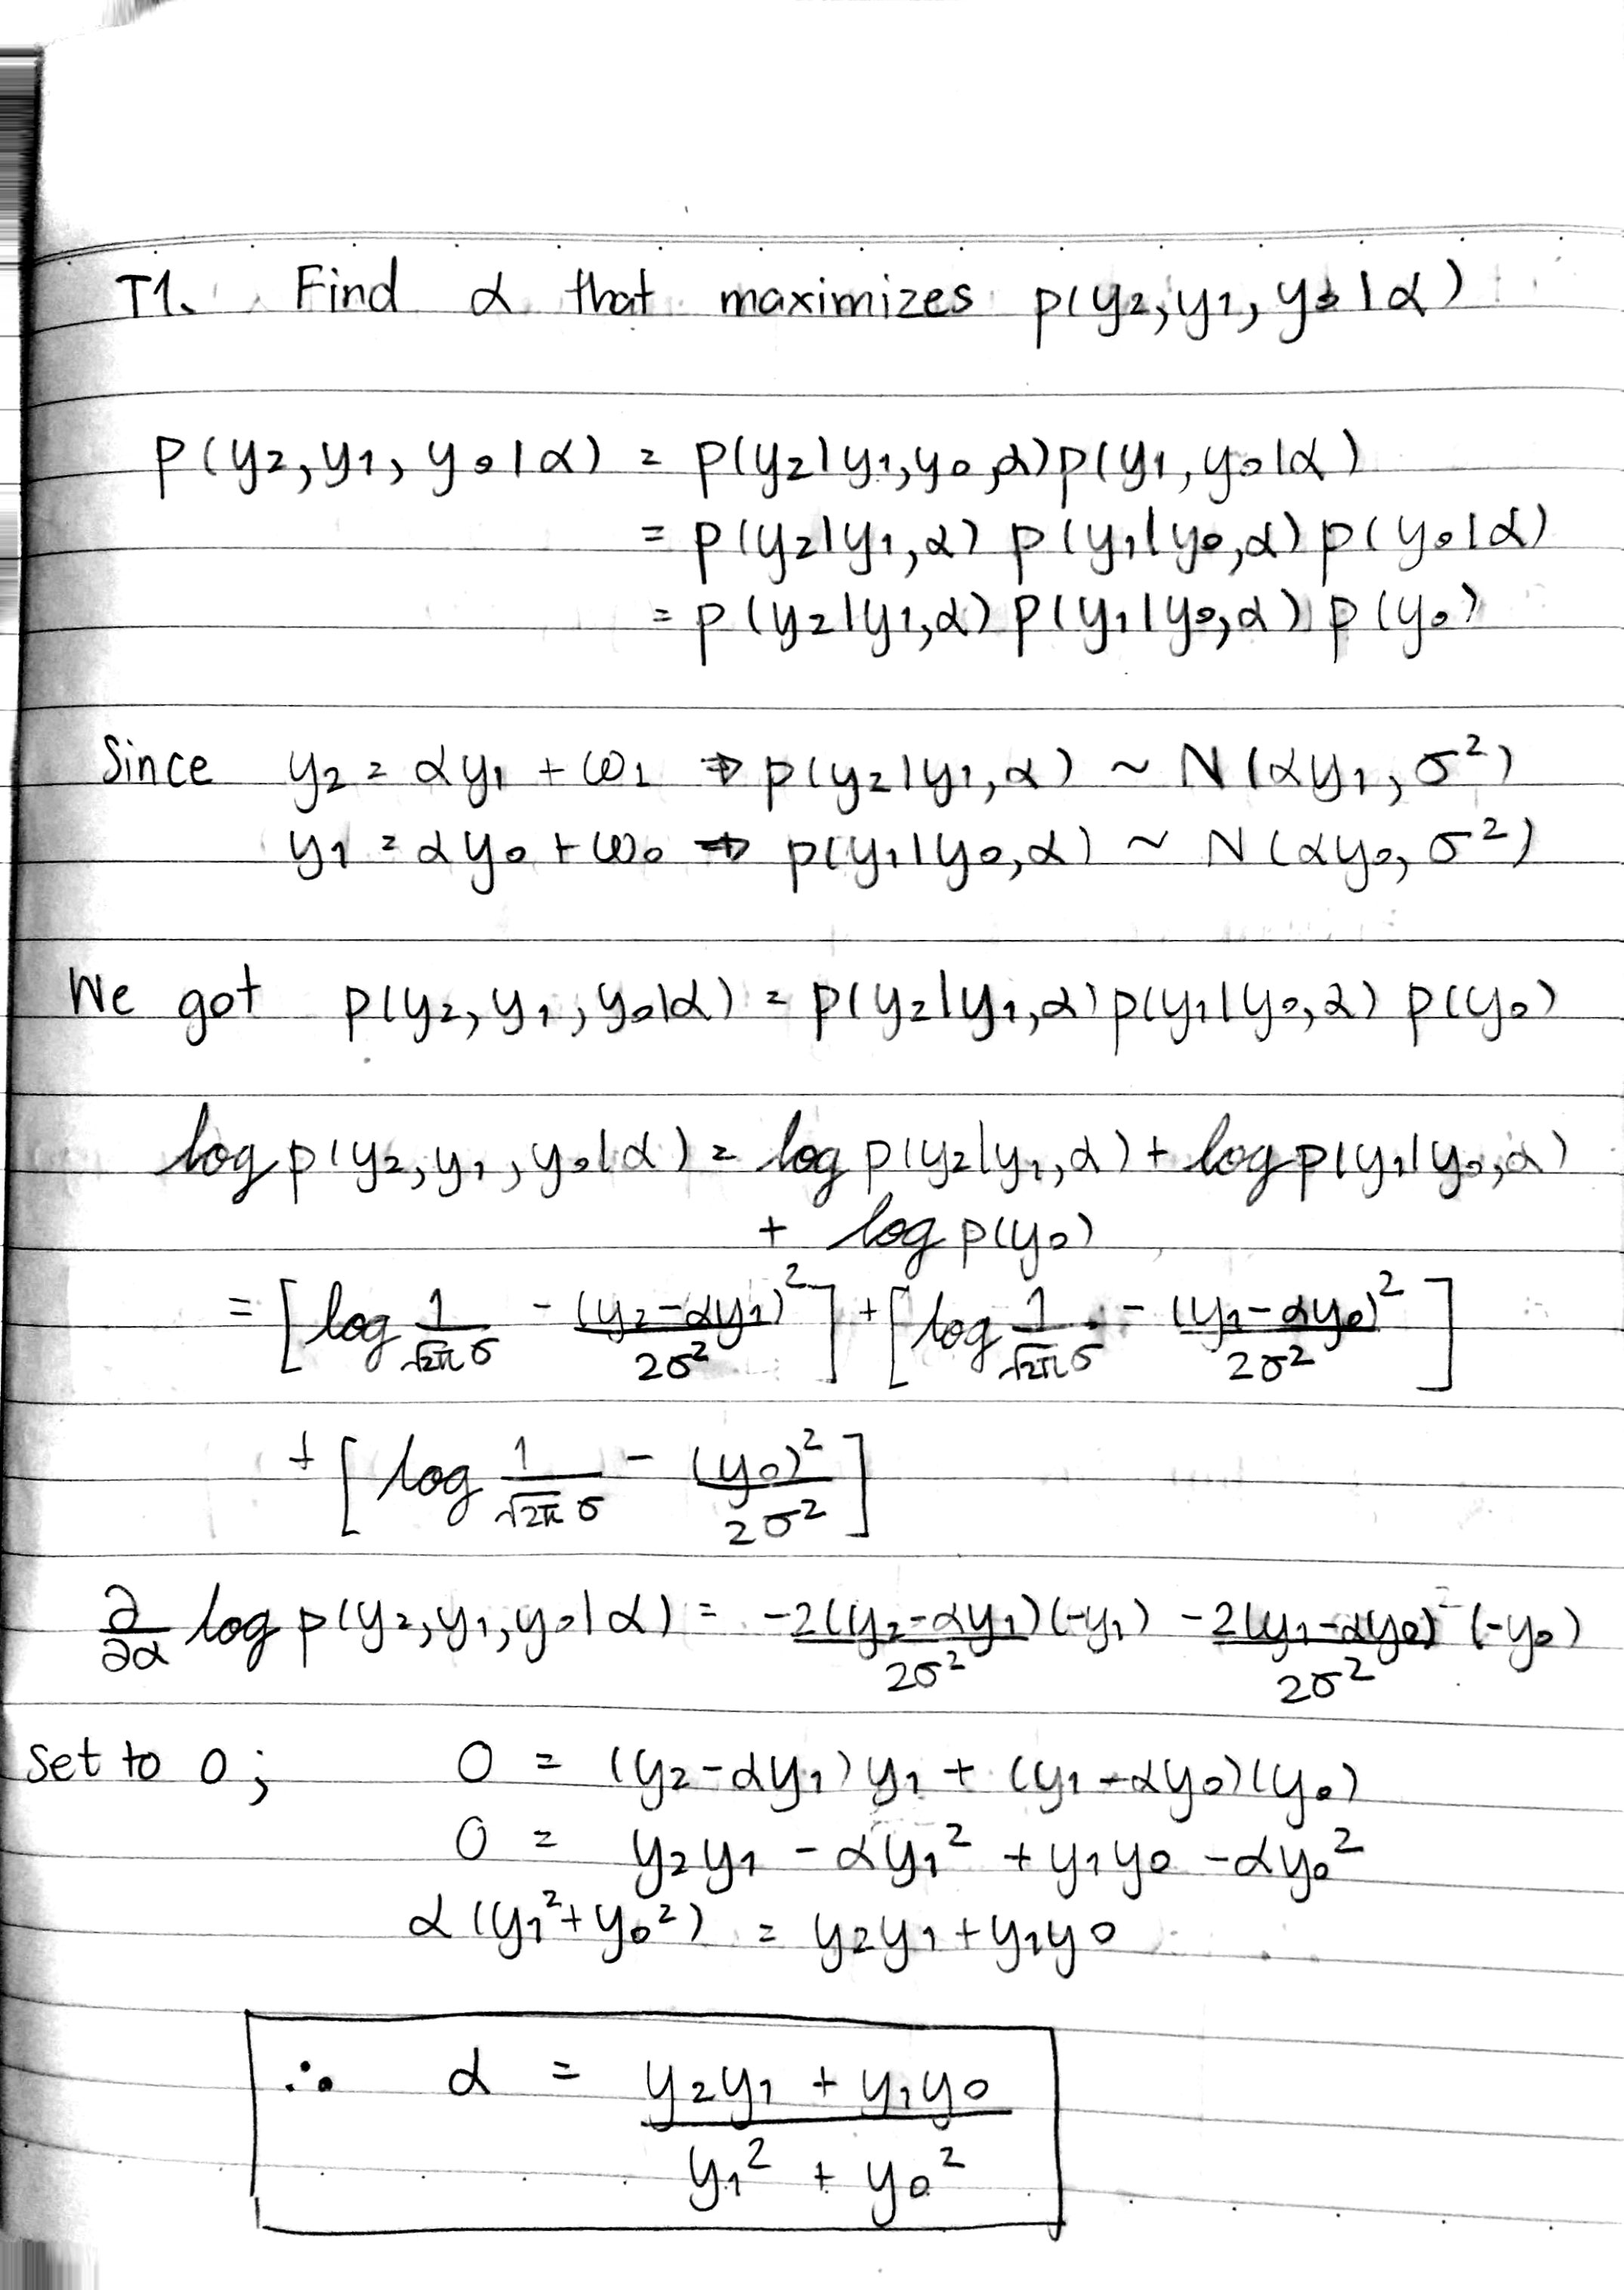 T1. Find α that maximizes p(y₂, y₁, y₀ | α)
p(y₂, y₁, y₀ | α) = p(y₂ | y₁, y₀, α) p(y₁, y₀ | α)
= p(y₂ | y₁, α) p(y₁ | y₀, α) p(y₀ | α)
= p(y₂ | y₁, α) p(y₁ | y₀, α) p(y₀)
Since y₂ = αy₁ + ω₁ ⇒ p(y₂ | y₁, α) ~ N(αy₁, σ²)
y₁ = αy₀ + ω₀ ⇒ p(y₁ | y₀, α) ~ N(αy₀, σ²)
We got p(y₂, y₁, y₀ | α) = p(y₂ | y₁, α) p(y₁ | y₀, α) p(y₀)
log p(y₂, y₁, y₀ | α) = log p(y₂ | y₁, α) + log p(y₁ | y₀, α)
+ log p(y₀)
= [log 1/(√2π σ) - (y₂ - αy₁)²/2σ²] + [log 1/(√2π σ) - (y₁ - αy₀)²/2σ²]
+ [log 1/(√2π σ) - (y₀)²/2σ²]
∂/∂α log p(y₂, y₁, y₀ | α) = -2(y₂ - αy₁)/2σ² (-y₁) - 2(y₁ - αy₀)/2σ² (-y₀)
Set to 0; 0 = (y₂ - αy₁) y₁ + (y₁ - αy₀)(y₀)
0 = y₂y₁ - αy₁² + y₁y₀ - αy₀²
α(y₁² + y₀²) = y₂y₁ + y₁y₀
∴ α = (y₂y₁ + y₁y₀)/(y₁² + y₀²)